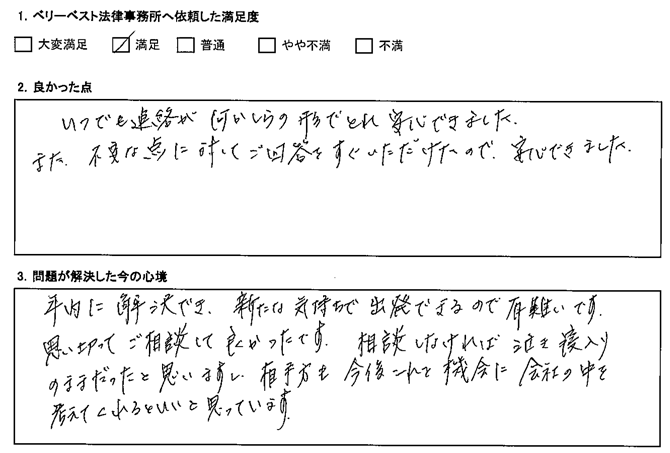 1. ベリーベスト法律事務所へ依頼した満足度
大変満足 満足 普通 やや不満 不満
2. 良かった点
いつでも連絡が何かしらの形でとれ安心できました。
また、不安な点に対してご回答をすぐいただけたので、安心できました。
3. 問題が解決した今の心境
年内に解決でき、新たな気持ちで出発できるので有難いです。
思い切ってご相談して良かったです。相談しなければ泣き寝入り
のままだったと思いますし、相手方も今後これを機会に会社の中を
考えてくれるといいと思っています。